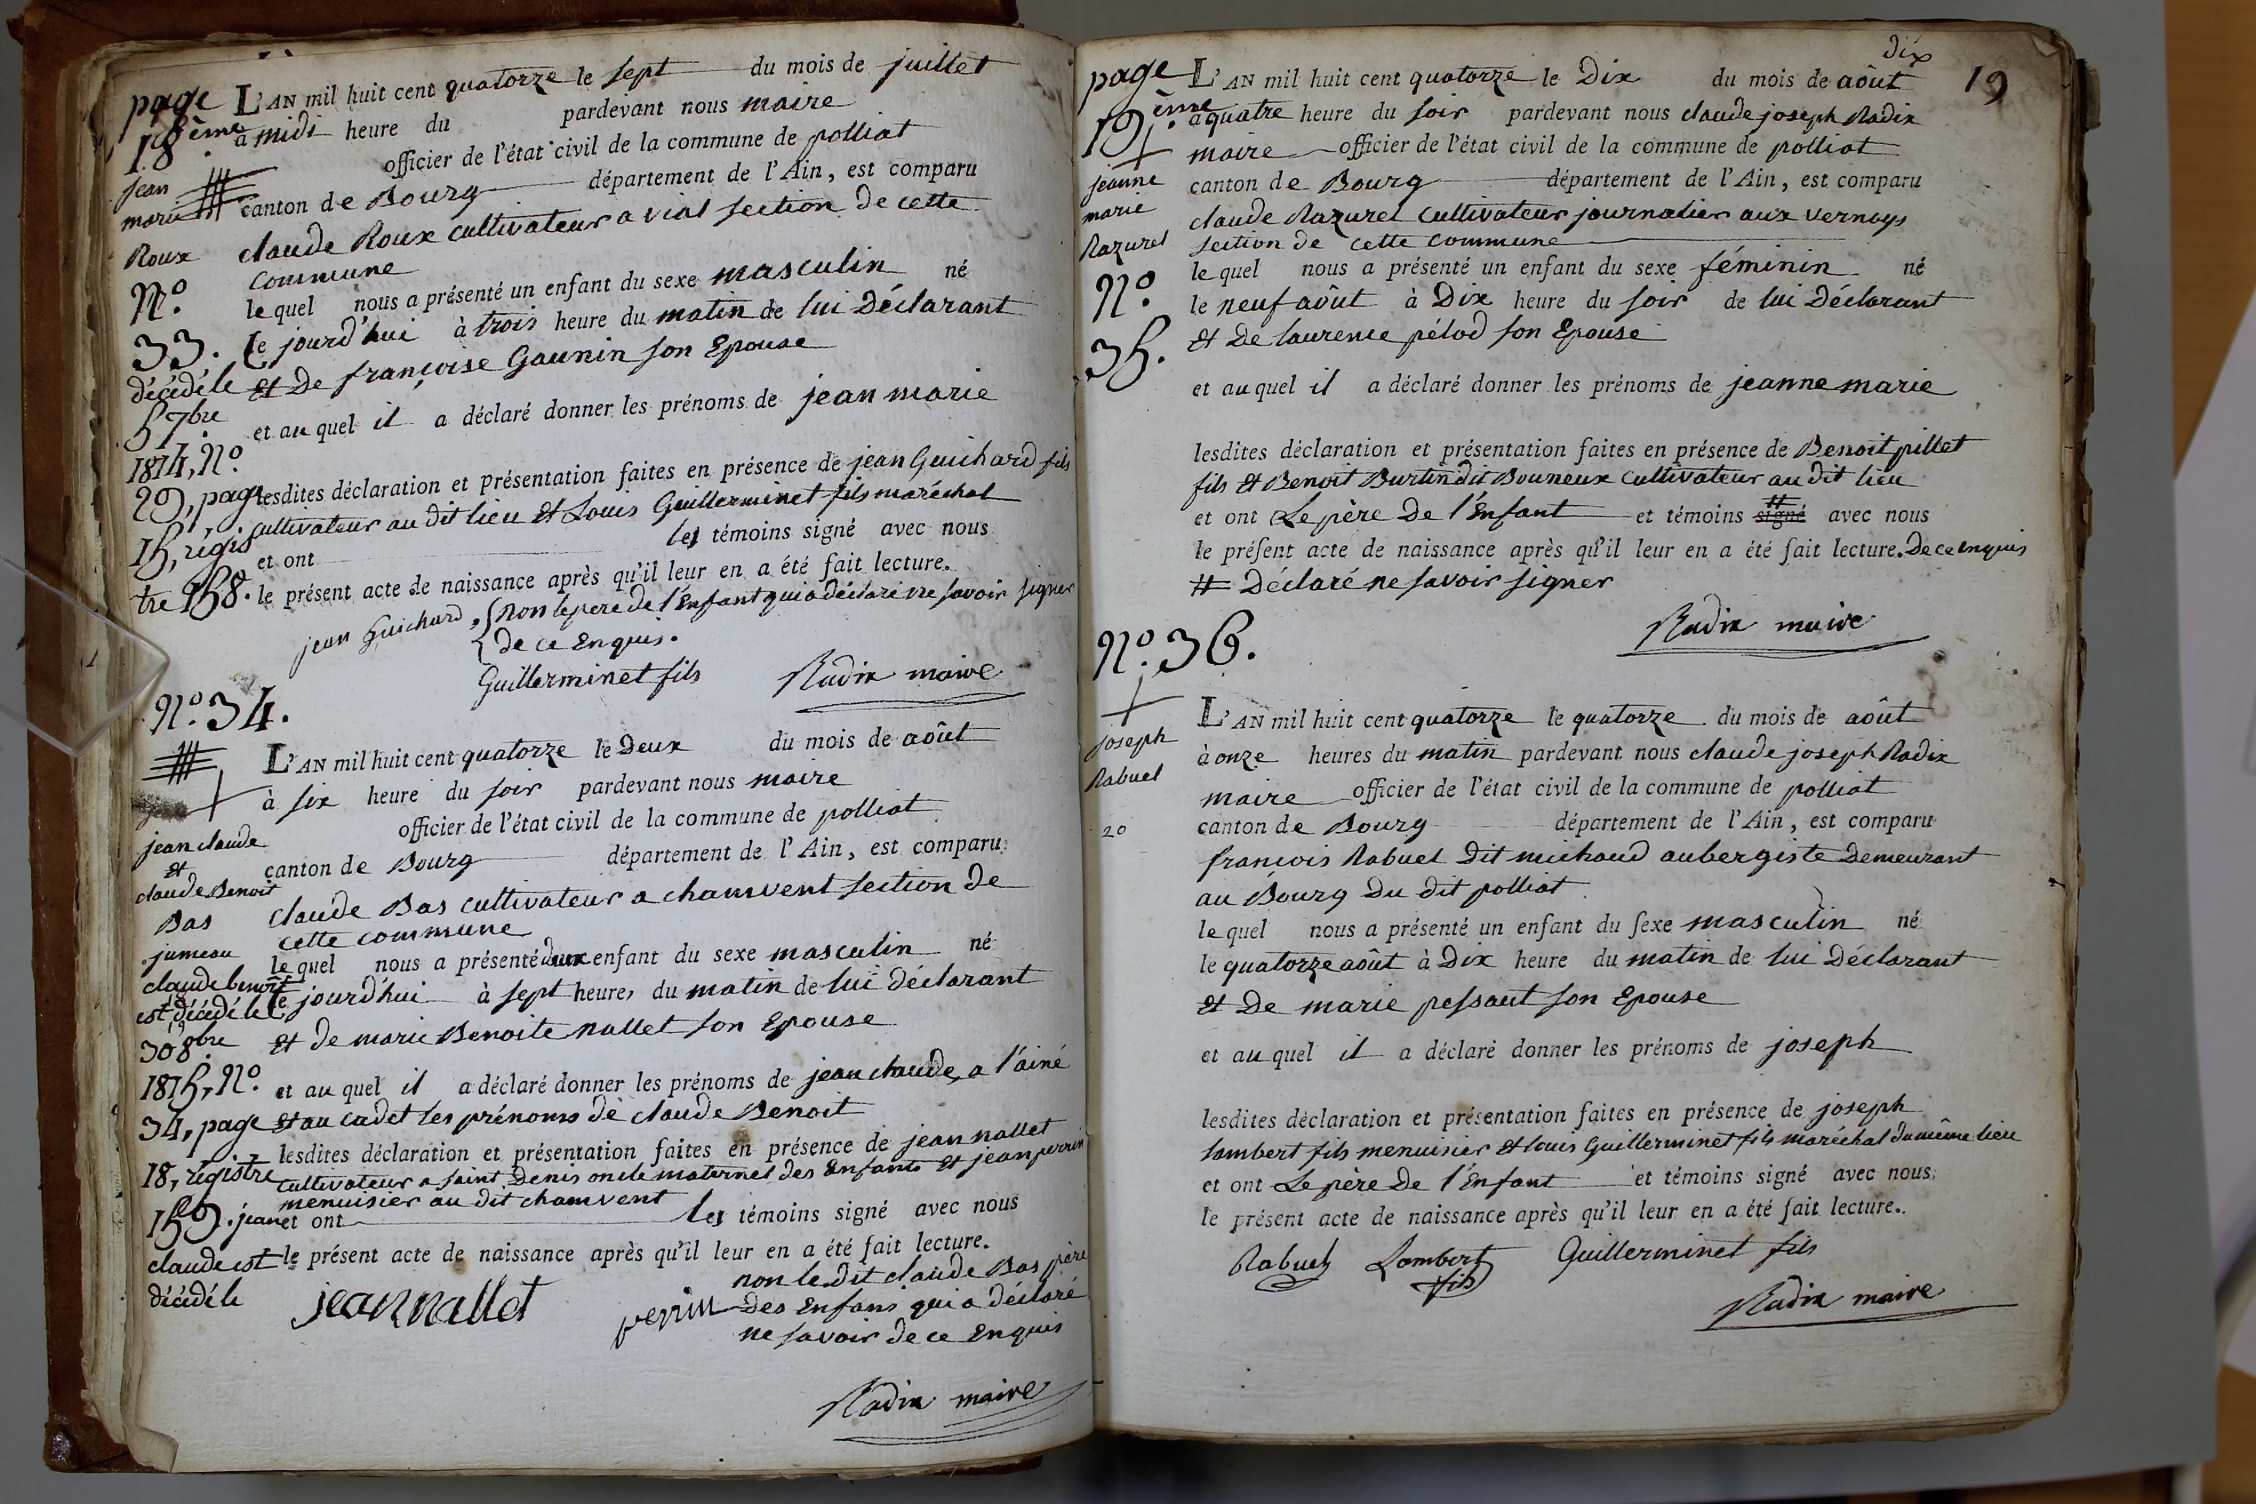 page
18ème
jean
marie
Roux
N.º
33.
décédé le
5 7bre
1814, N.º
29, page
15, régis
tre 158.
L'AN mil huit cent quatorze le sept du mois de juillet
à midi heure du pardevant nous maire
officier de l'état civil de la commune de polliat
canton de Bourg département de l'Ain, est comparu
claude Roux cultivateur a vial section de cette
commune
le quel nous a présenté un enfant du sexe masculin né
le jourd'hui à trois heure du matin de lui Déclarant
et De françoise Gaunin son Epouse
et au quel il a déclaré donner les prénoms de jean marie
lesdites déclaration et présentation faites en présence de jean Guichard fils
cultivateur au dit lieu et Louis Guillerminet fils maréchal
et ont les témoins signé avec nous
le présent acte de naissance après qu'il leur en a été fait lecture.
jean Guichard, Non le pere de l'Enfant qui a déclaré ne savoir signer
de ce Enquis.
Guillerminet fils Radix maire
N.º 34.
jean claude
et
claude Benoit
Bas
jumeau
claude benoit
est décédé le
30 8bre
1815, N.º
34, page
18, régistre
159. jean
claude est
décédé le
L'AN mil huit cent quatorze le Deux du mois de août
à six heure du soir pardevant nous maire
officier de l'état civil de la commune de polliat
canton de Bourg département de l'Ain, est comparu
claude Bas cultivateur a chamvent section de
cette commune
le quel nous a présenté deux enfant du sexe masculin né
le jourd'hui à sept heures du matin de lui déclarant
et de marie Benoite nallet son Epouse
et au quel il a déclaré donner les prénoms de jean claude, a l'ainé
et au cadet les prénoms de claude Benoit
lesdites déclaration et présentation faites en présence de jean nallet
cultivateur a saint Denis oncle maternel des Enfants et jean perrin
menuisier au dit chamvent
et ont les témoins signé avec nous
le présent acte de naissance après qu'il leur en a été fait lecture.
non le dit claude Bas père
jean nallet perrin Des Enfans qui a déclaré
ne savoir de ce Enquis
Radix maire
dix
19
page
19.ème
jeanne
marie
Razurel
N.º
35.
L'AN mil huit cent quatorze le Dix du mois de août
à quatre heure du soir pardevant nous claude joseph Radix
maire officier de l'état civil de la commune de polliat
canton de Bourg département de l'Ain, est comparu
claude Razurel cultivateur journalier aux vernays
section de cette commune
le quel nous a présenté un enfant du sexe féminin né
le neuf août à Dix heure du soir de lui Déclarant
et De laurence pélod son Epouse
et au quel il a déclaré donner les prénoms de jeanne marie
lesdites déclaration et présentation faites en présence de Benoit pillet
fils et Benoit Burtin dit Bouneux cultivateur au dit lieu
et ont Le père De l'Enfant et témoins signé avec nous
le présent acte de naissance après qu'il leur en a été fait lecture. De ce enquis
# Déclaré ne savoir signer
Radix maire
N.º 36.
joseph
Rabuel
20
L'AN mil huit cent quatorze le quatorze du mois de août
à onze heures du matin pardevant nous claude joseph Radix
maire officier de l'état civil de la commune de polliat
canton de Bourg département de l'Ain, est comparu
françois Rabuel Dit michaud aubergiste Demeurant
au Bourg Du dit polliat
le quel nous a présenté un enfant du sexe masculin né
le quatorze août à Dix heure du matin de lui Déclarant
et De marie pessaut son Epouse
et au quel il a déclaré donner les prénoms de joseph
lesdites déclaration et présentation faites en présence de joseph
lambert fils menuisier et louis Guillerminet fils maréchal du même lieu
et ont Le père De l'Enfant et témoins signé avec nous
le présent acte de naissance après qu'il leur en a été fait lecture.
Rabuel Lambert Guillerminet fils
fils
Radix maire